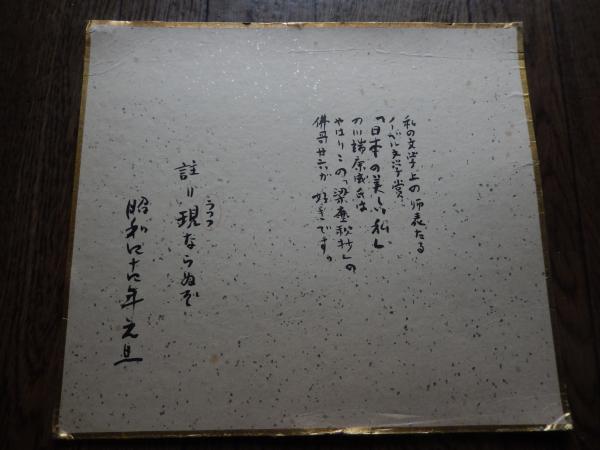 私の文学上の師表たる
ノーベル文学賞、
「日本の美しい私」
の川端康成氏は
やはりこの「梁塵秘抄」の
佛哥廿六が好きです。
註リ現ならぬぞ
ウツツ
昭和四十四年元旦